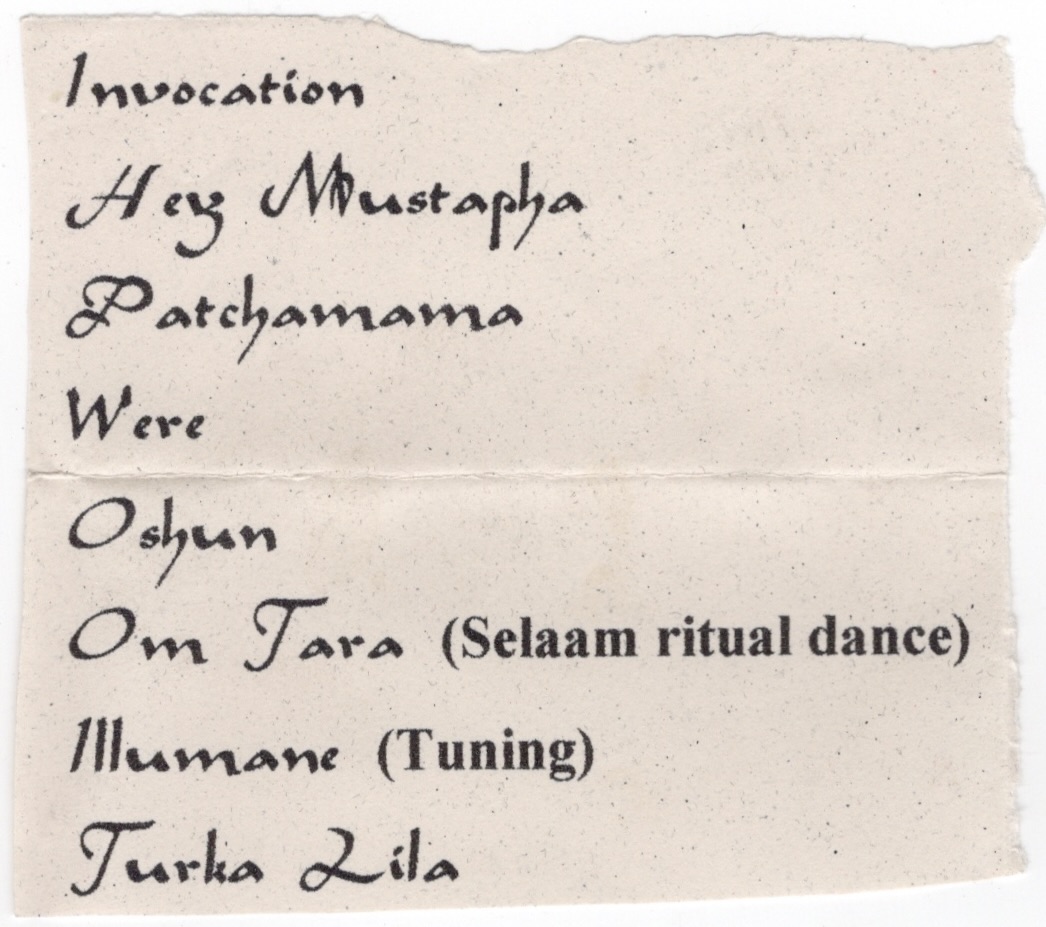 Invocation
Hey Mustapha
Patchamama
Were
Oshun
Om Tara (Selaam ritual dance)
Illumane (Tuning)
Turka Lila